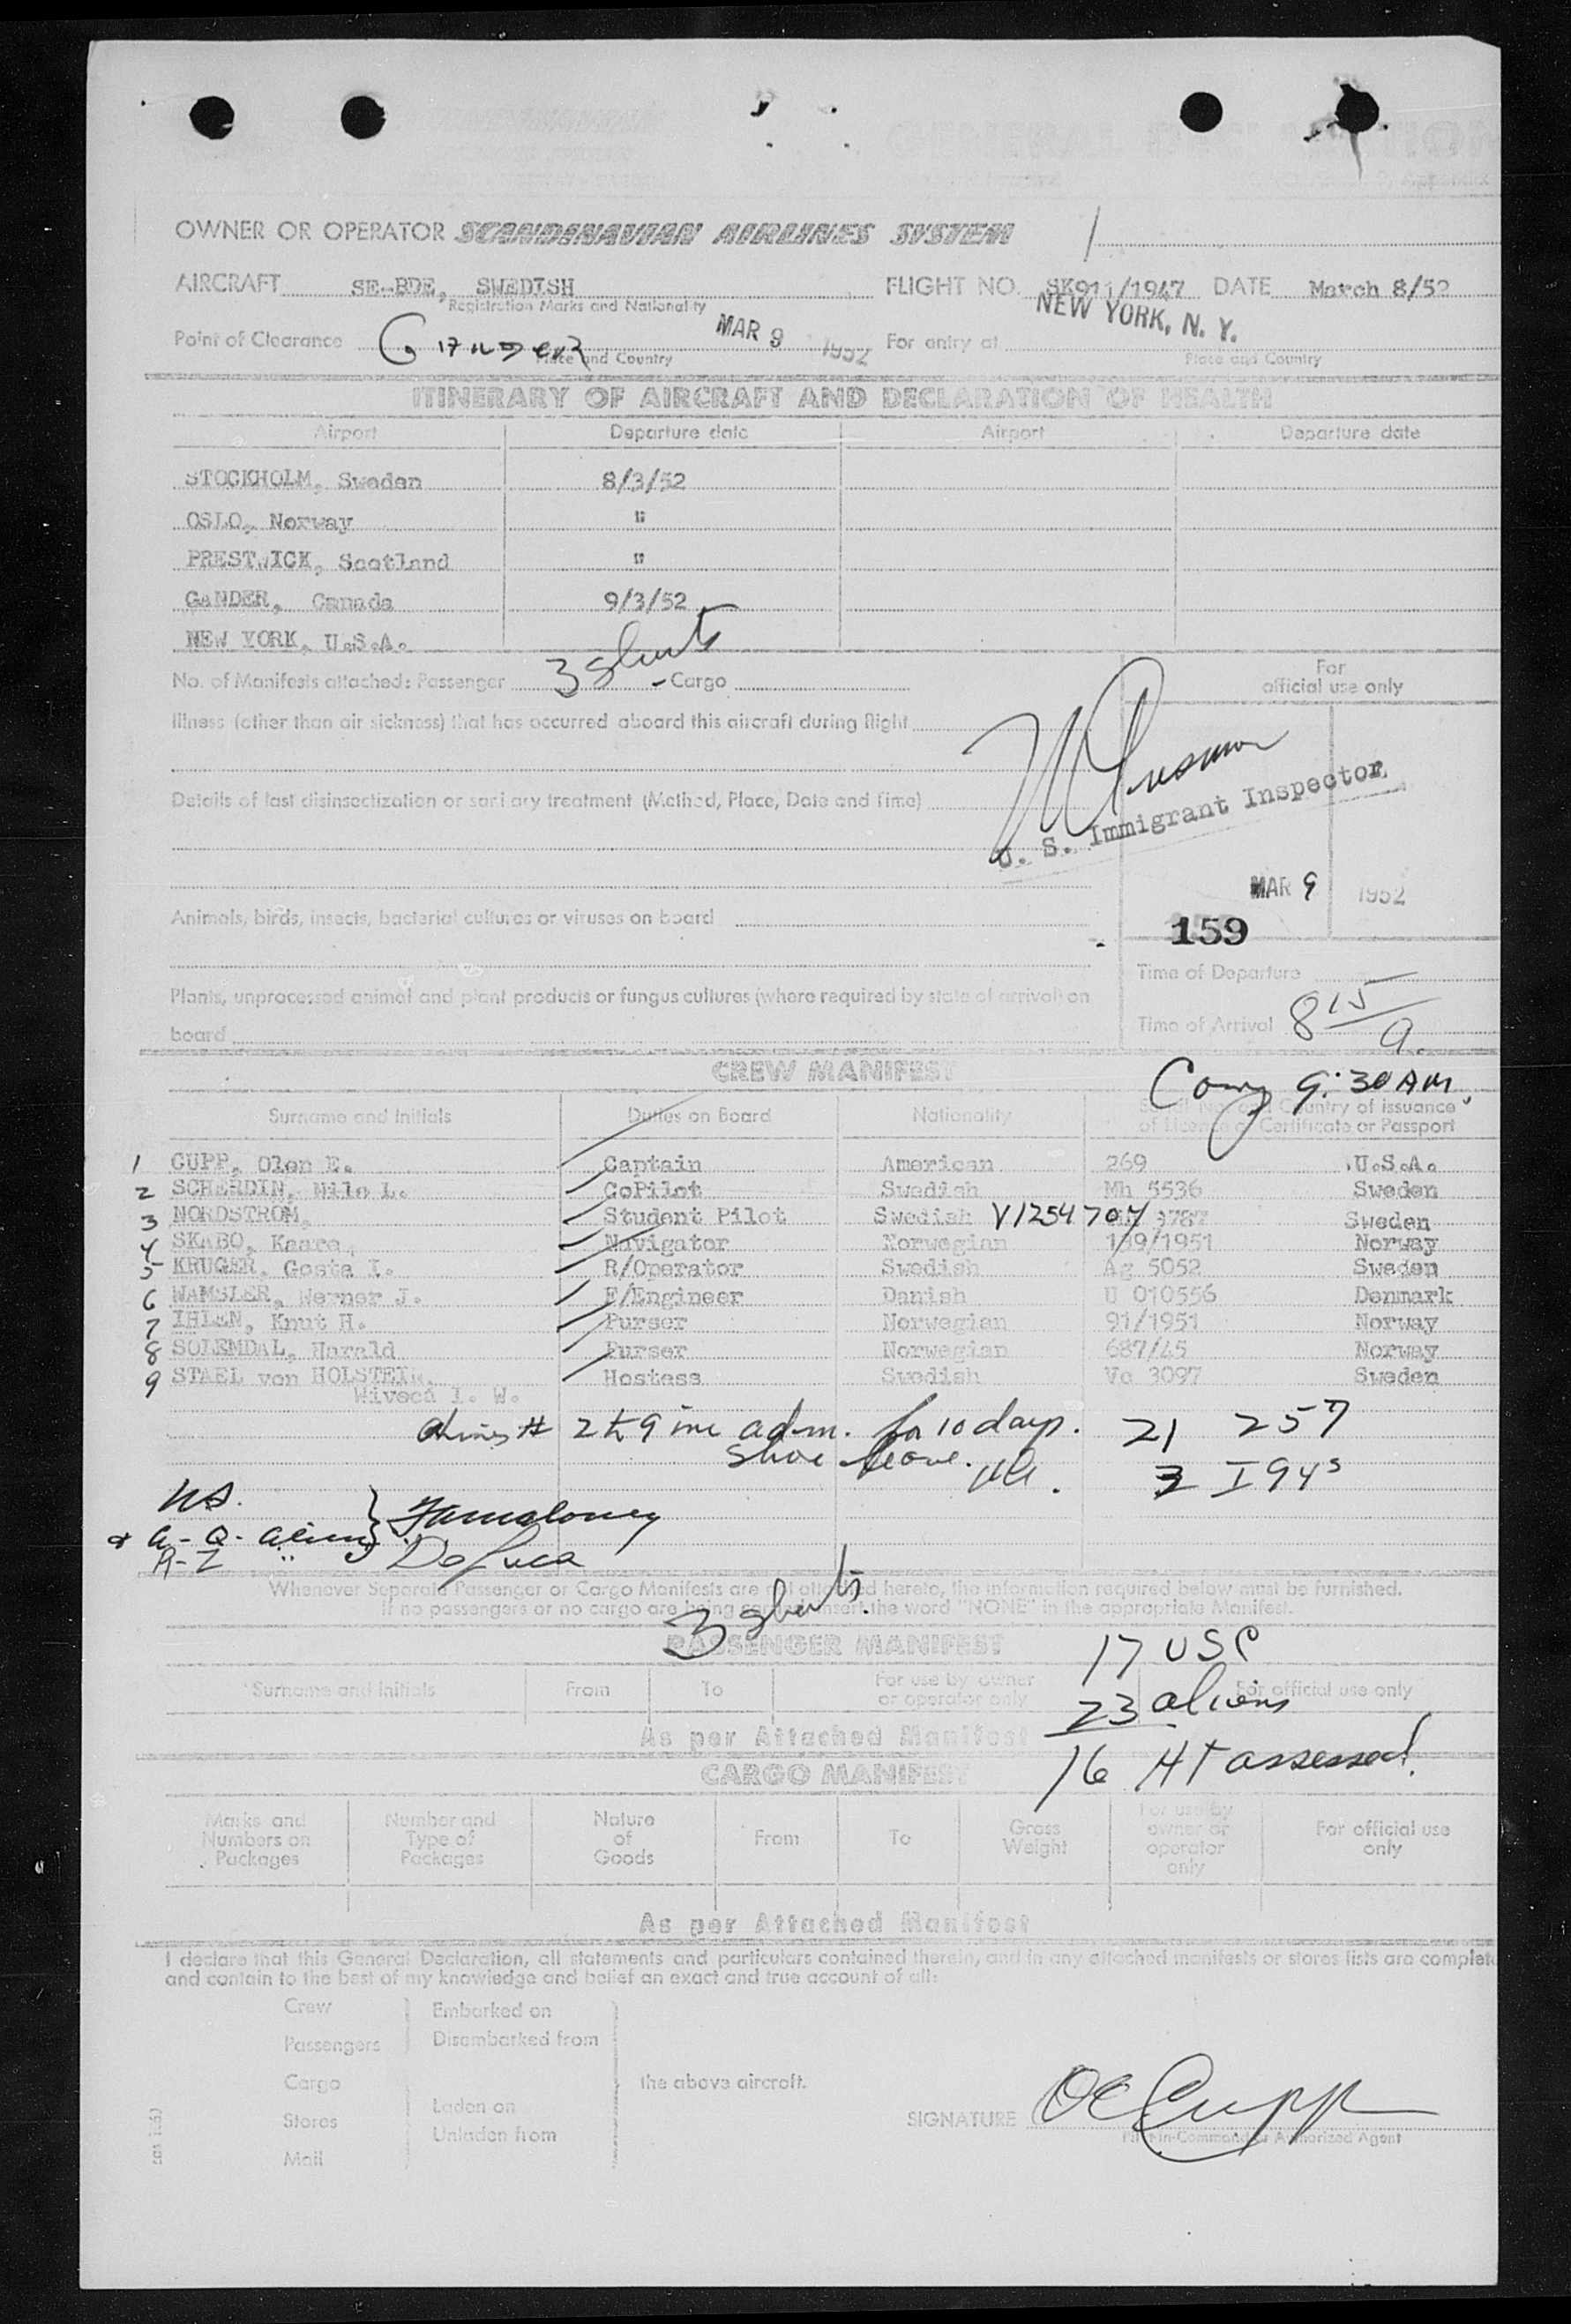 GENERAL DECLARATION
OWNER OR OPERATOR SCANDINAVIAN AIRLINES SYSTEM
AIRCRAFT SE-BDE, SWEDISH FLIGHT NO. SK911/1947 DATE March 8/52
Registration Marks and Nationality
NEW YORK, N. Y.
Point of Clearance Gander MAR 9 1952 For entry at
Place and Country Place and Country
ITINERARY OF AIRCRAFT AND DECLARATION OF HEALTH
Airport Departure date Airport Departure date
STOCKHOLM, Sweden 8/3/52
OSLO, Norway "
PRESTWICK, Scotland "
GANDER, Canada 9/3/52
NEW YORK, U.S.A.
No. of Manifests attached: Passenger 3 sheets - Cargo
For
official use only
Illness (other than air sickness) that has occurred aboard this aircraft during flight
Details of last disinsectization or sanitary treatment (Method, Place, Date and Time)
U. S. Immigrant Inspector
MAR 9 1952
Animals, birds, insects, bacterial cultures or viruses on board
159
Time of Departure
Plants, unprocessed animal and plant products or fungus cultures (where required by state of arrival) on
board
Time of Arrival 8 15/a
CREW MANIFEST
9:30 AM.
Surname and Initials Duties on Board Nationality Serial No. and Country of issuance
of Licence or Certificate or Passport
1 CUPP, Olen E. Captain American 269 U.S.A.
2 SCHERDIN, Nils L. CoPilot Swedish Mh 5536 Sweden
3 NORDSTROM, Student Pilot Swedish V1254707 3787 Sweden
4 SKABO, Kaare, Navigator Norwegian 139/1951 Norway
5 KRUGER, Gosta I. R/Operator Swedish Ag 5052 Sweden
6 WAMBLER, Werner J. F/Engineer Danish U 010556 Denmark
7 IHLEN, Knut H. Purser Norwegian 91/1951 Norway
8 SOLEMDAL, Harald Purser Norwegian 687/45 Norway
9 STAEL von HOLSTEIN, Hostess Swedish Va 3097 Sweden
Wiveca I. W.
Aliens # 2 to 9 inc adm. for 10 days. 21 257
Shore leave. 2 I 94s
3 sheets
Whenever Separate Passenger or Cargo Manifests are not attached hereto, the information required below must be furnished.
If no passengers or no cargo are being carried insert the word "NONE" in the appropriate Manifest.
PASSENGER MANIFEST
17 USC
Surname and Initials From To For use by owner
or operator only
For official use only
23 aliens
As per Attached Manifest
16 HT assessed!
CARGO MANIFEST
Marks and
Numbers on
Packages
Number and
Type of
Packages
Nature
of
Goods
From
To
Gross
Weight
For use by
owner or
operator
only
For official use
only
As per Attached Manifest
I declare that this General Declaration, all statements and particulars contained therein, and in any attached manifests or stores lists are complete
and contain to the best of my knowledge and belief an exact and true account of all:
Crew
Passengers
Embarked on
Disembarked from
Cargo
Stores
Mail
Laden on
Unladen from
the above aircraft.
SIGNATURE OE Cupp
Pilot-in-Command or Authorized Agent